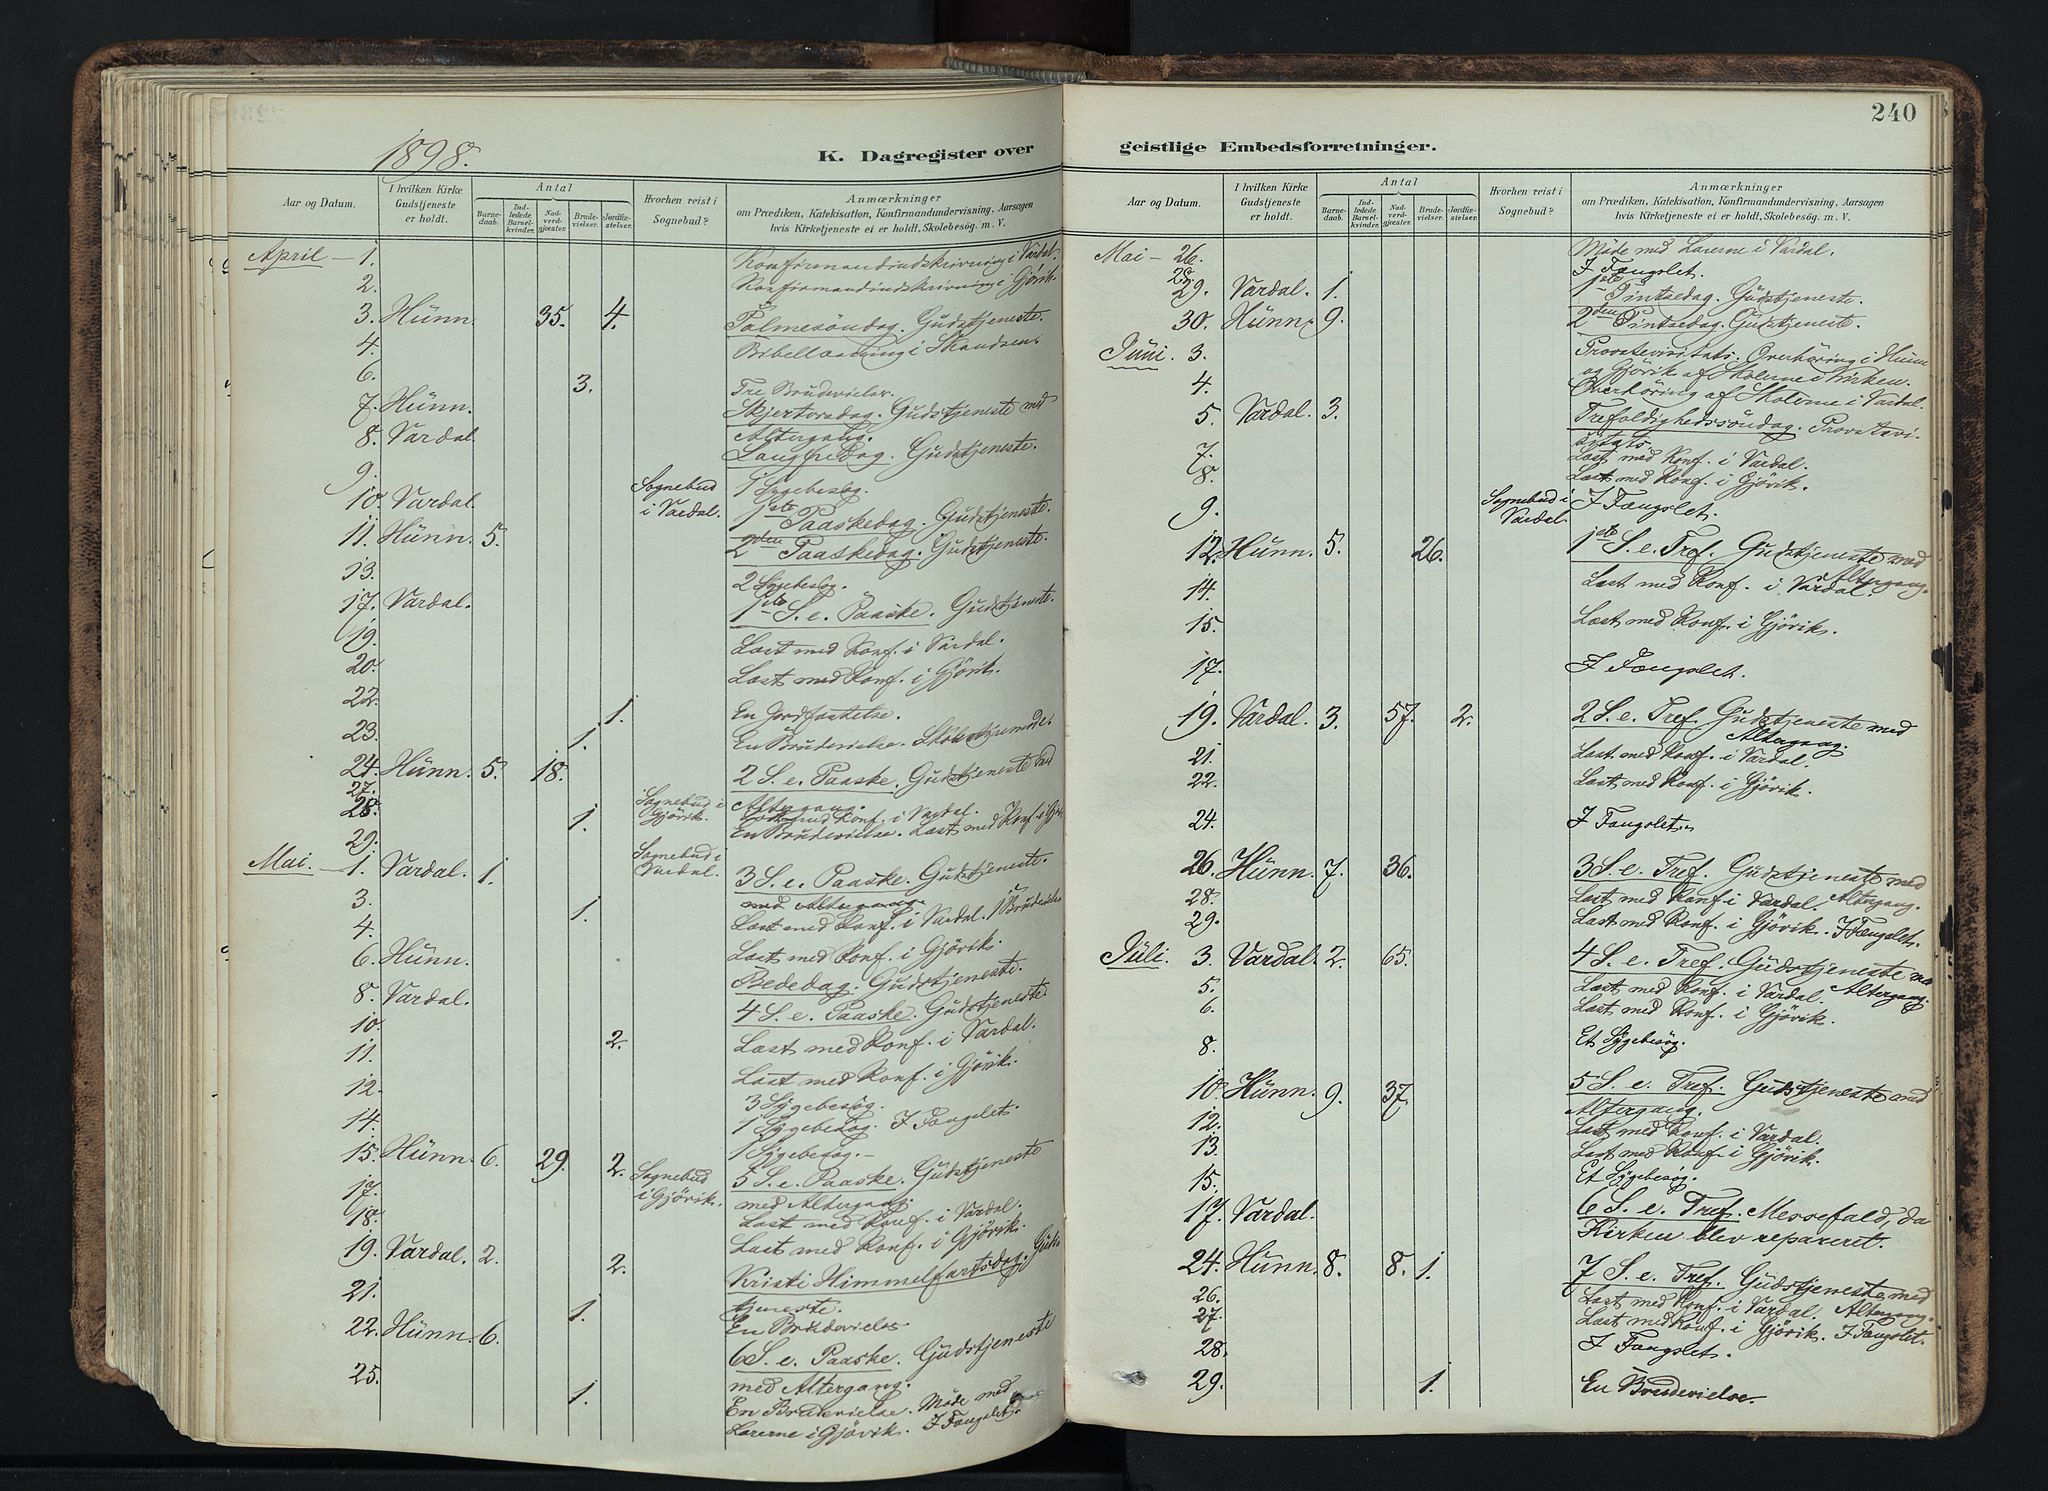 240
1898.
K. Dagregister over
geistlige Embedsforretninger.
Aar og Datum.
I hvilken Kirke Gudstjeneste er holdt.
Antal
Barnedaab.
Indledede Barselkvinder.
Nadverdgjester.
Brudevielser.
Jordfæstelser.
Hvorhen reist i Sognebud?
Anmærkninger
om Prædiken, Katekisation, Konfirmandundervisning, Aarsagen
hvis Kirketjeneste ei er holdt, Skolebesög. m. V.
April 1. Konfirmandindskrivning i Vardal.
2. Konfirmandindskrivning i Gjövik.
3. Hunn. 35. 4. Palmesöndag. Gudstjeneste.
4. Bibellæsning i
6. 3. Tre Brudevielser.
7. Hunn. Skjertorsdag. Gudstjeneste med
Altergang.
8. Vardal. Langfredag. Gudstjeneste.
9. Sognebud i Vardal. 1 Sygebesög.
10. Vardal. 1ste Paaskedag. Gudstjeneste.
11. Hunn. 5. 2den Paaskedag. Gudstjeneste.
13. 2 Sygebesög.
17. Vardal. 1ste S. e. Paaske. Gudstjeneste.
19. Læst med Konf. i Vardal.
20. Læst med Konf. i Gjövik.
22. 1. En Jordfæstelse.
23. 1. En Brudevielse.
24. Hunn. 5. 18. 2 S. e. Paaske. Gudstjeneste med
Altergang.
27. Læst med Konf. i Vardal.
28. 1. Sognebud i Gjövik. En Brudevielse. Læst med Konf. i
29. Sognebud i Vardal.
Mai. 1. Vardal. 1. 3 S. e. Paaske. Gudstjeneste
med Altergang
3. 1. Læst med Konf. i Vardal. 1 Brudevielse
4. Læst med Konf. i Gjövik.
6. Hunn. Bededag. Gudstjeneste.
8. Vardal. 4 S. e. Paaske. Gudstjeneste.
10. 2. Læst med Konf. i Vardal.
11. Læst med Konf. i Gjövik.
12. 3 Sygebesög.
14. 1 Sygebesög. I Fængslet.
1 Sygebesög.
15. Hunn. 6. 29. 2. 5 S. e. Paaske. Gudstjeneste
med Altergang.
17. Sognebud i Gjövik. Læst med Konf. i Vardal.
18. Læst med Konf. i Gjövik.
19. Vardal. 2. 2. Kristi Himmelfartsdag. Guds
tjeneste.
21. 1. En Brudevielse
22. Hunn. 6. 6 S. e. Paaske. Gudstjeneste
med Altergang.
25. 1. En Brudevielse. Möde med
Lærerne i Gjövik. I Fængslet.
Mai 26. Möde med Lærerne i Vardal.
28. I Fængslet.
29. Vardal. 1. 1ste Pintsedag. Gudstjeneste.
30. Hunn. 9. 2den Pintsedag. Gudstjeneste.
Juni. 3. Provstevisitats. Overhöring i Hunn
og Gjövik af Skolerne i Kirken.
4. Overhöring af Skolerne i Vardal.
5. Vardal. 3. Trefoldighedssöndag. Provstevi-
sitats.
7. Læst med Konf. i Vardal.
8. Læst med Konf. i Gjövik.
9. Sognebud i Vardal. I Fængslet.
12. Hunn. 5. 26. 1ste S. e. Tref. Gudstjeneste med
Altergang.
14. Læst med Konf. i Vardal.
15. Læst med Konf. i Gjövik.
17. I Fængslet.
19. Vardal. 3. 57. 2. 2 S. e. Tref. Gudstjeneste med
Altergang.
21. Læst med Konf. i Vardal.
22. Læst med Konf. i Gjövik.
24. I Fængslet.
26. Hunn. 7. 36. 3 S. e. Tref. Gudstjeneste med
Altergang.
28. Læst med Konf. i Vardal.
29. Læst med Konf. i Gjövik. I Fængslet.
Juli. 3. Vardal. 2. 65. 4 S. e. Tref. Gudstjeneste m
Altergang.
5. Læst med Konf. i Vardal.
6. Læst med Konf. i Gjövik.
8. Et Sygebesög.
10. Hunn. 9. 37. 5 S. e. Tref. Gudstjeneste med
Altergang.
12. Læst med Konf. i Vardal.
13. Læst med Konf. i Gjövik.
15. Et Sygebesög.
17. Vardal. 6 S. e. Tref. Messefald, da
Kirken blev repareret.
24. Hunn. 8. 8. 1. 7 S. e. Tref. Gudstjeneste med
Altergang.
26. Læst med Konf. i Vardal.
27. Læst med Konf. i Gjövik. I Fængslet.
28. I Fængslet.
29. 1. En Brudevielse.